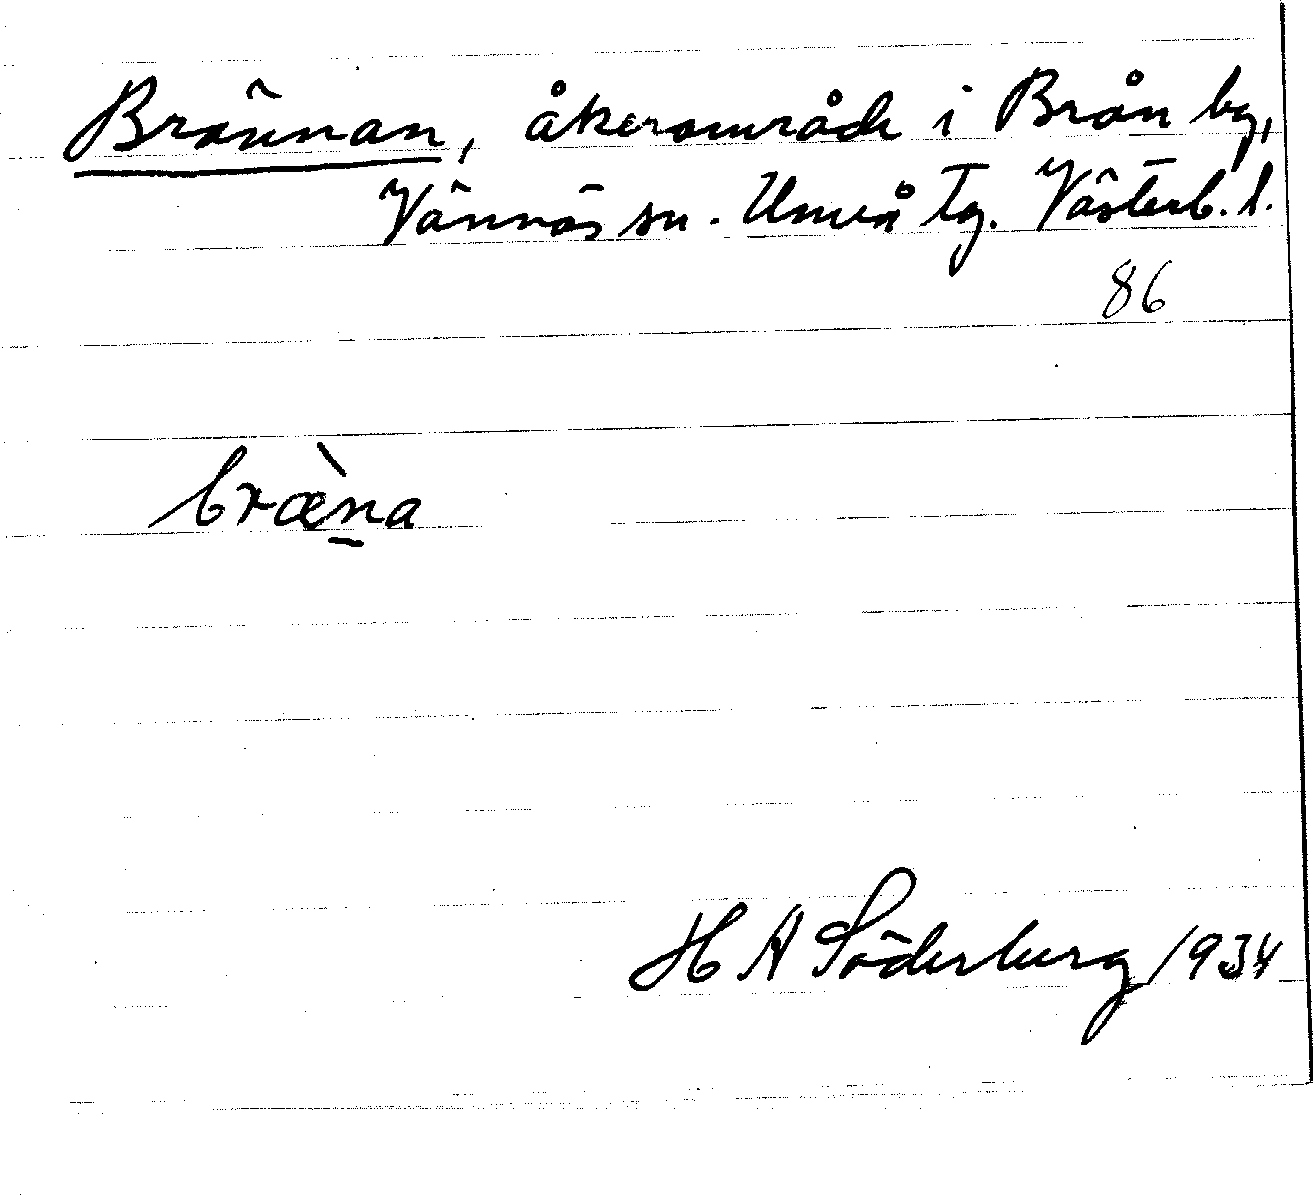 Brännan, åkerområde i Brån by,
Vännäs sn. Umeå tg. Västerb. l.
86
bræ̀n̠a
H A Söderberg 1934